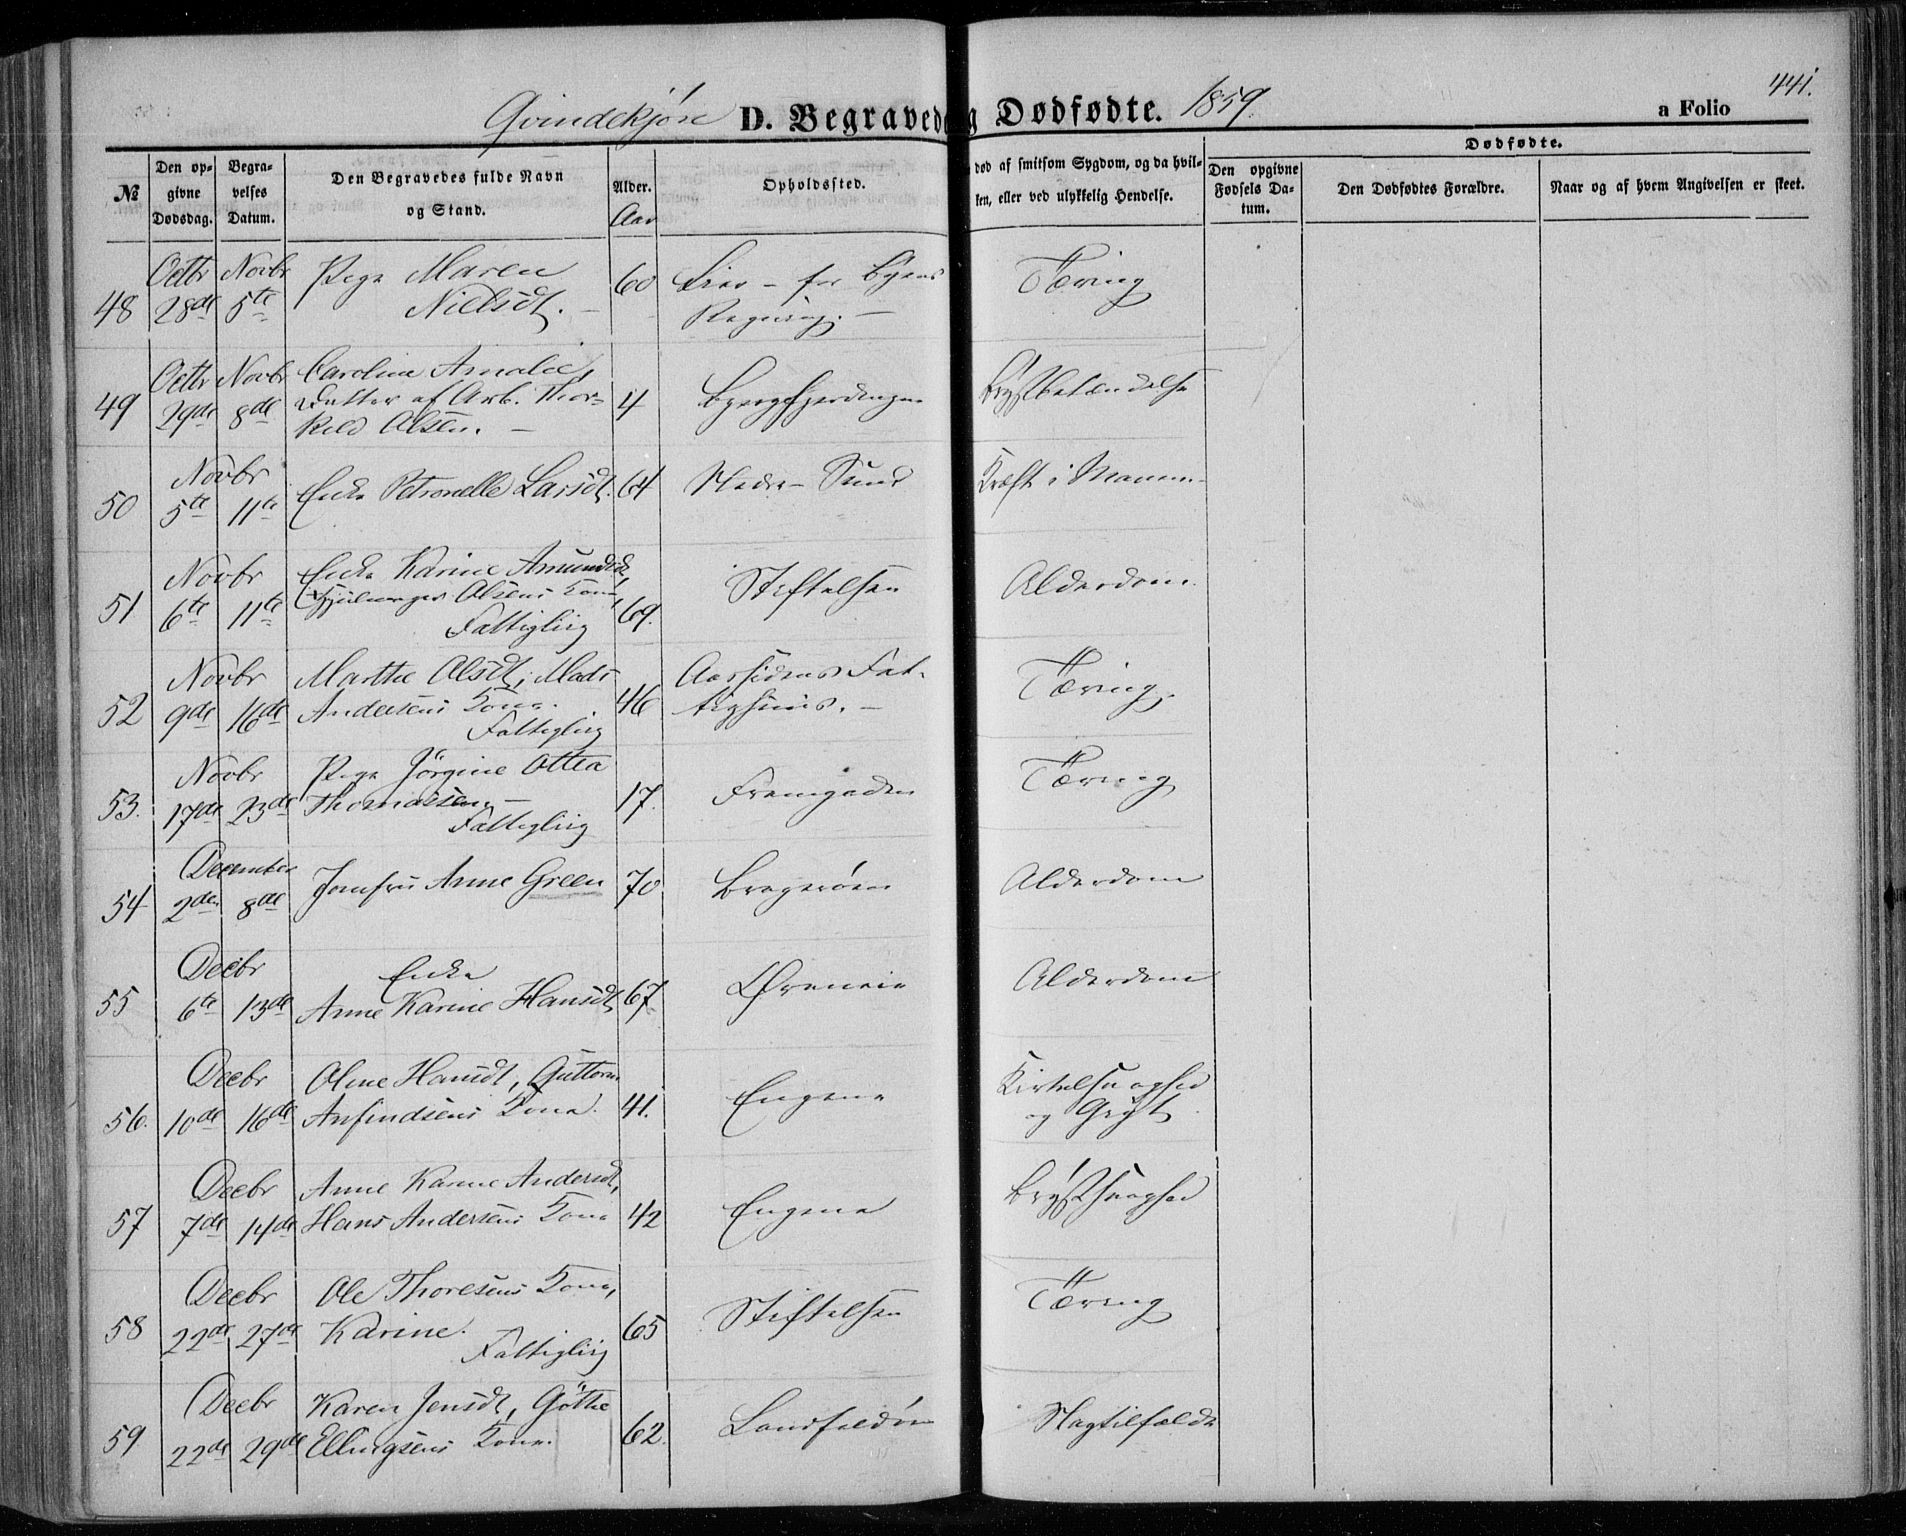 Qvindekjøn D. Begravede og Dødfødte. 1859. a Folio 441.
№ Den opgivne Dødsdag. Begravelses Datum. Den Begravedes fulde Navn og Stand. Alder. Aar Opholdssted. død af smitsom Sygdom, og da hvilken, eller ved ulykkelig Hendelse. Dødfødte.
Den opgivne Fødsels Datum. Den Dødfødtes Forældre. Naar og af hvem Angivelsen er skeet.
48 Octbr 28de Novbr 5te Pige Maren Nielsdt. 60 Lier - for Byens Regning. Tæring
49 Octbr 29de Novbr 8de Caroline Amalie, Datter af Arb. Thorkild Olsen. 4 Bragesfjerdingen Brystbetændelse
50 Novbr 5te 11te Enke Petronelle Larsdt. 64 Nedre Sund Kræft i Maven
51 Novbr 6te 11te Enke Karine Amundsd. Olsens Kone, Fattiglig 69. Stiftelsen Alderdom
52 Novbr 9de 16de Marthe Olsdt, Mads Andersens Kone. Fattiglig 46 Aassidens Fattighuus. Tæring.
53. Novbr 17de 23de Pige Jörgine Ottea Thomassen Fattiglig 17. Fremgaden Tæring
54 December 2den 8de Jomfru Anne Green 70 Bragerøen Alderdom
55 Decbr 6te 13de Enke Anne Karine Hansdt 67 Øreneie Alderdom
56. Decbr 10de 16de Oline Hansdt, Guttorm Anfindsens Kone. 41. Engene Kirtelsvaghed og Gigt
57 Decbr 7de 14de Anne Karine Andersdt, Hans Andersens Kone 42 Engene Brystsvaghed
58 Decbr 22de 27de Ole Thoresens Kone, Karine. Fattiglig 65 Stiftelsen Tæring
59 Decbr 22de 29de Karen Jensdt, Göthe Ellingsens Kone. 62. Landfaldøen Slagtilfælde